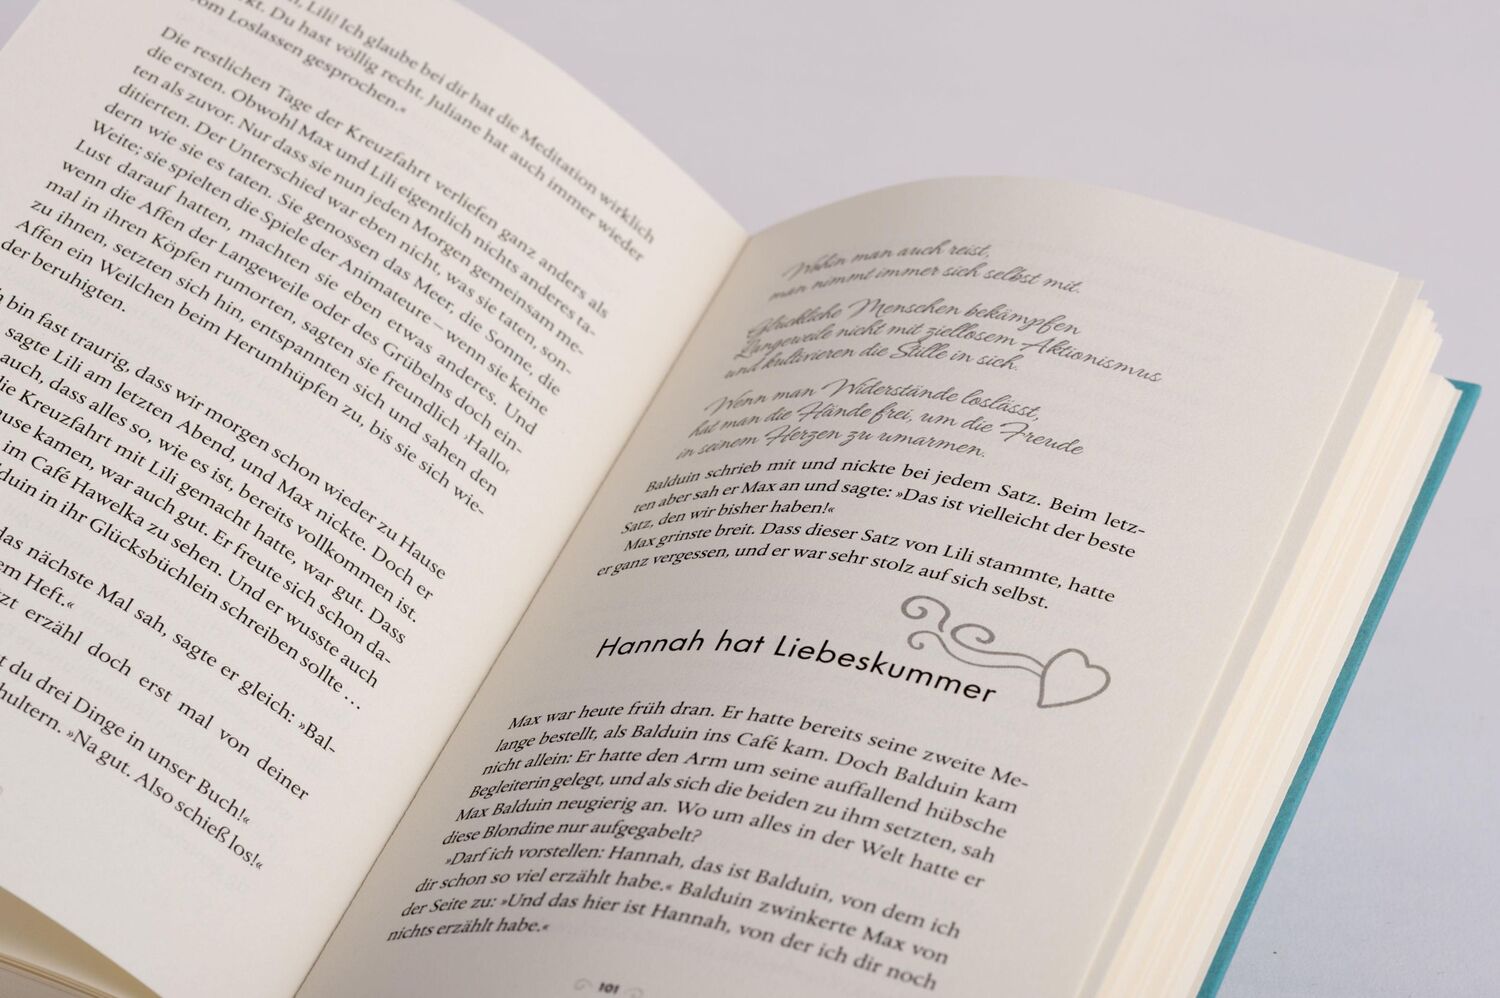 Lili! Ich glaube bei dir hat die Meditation wirklich
Du hast völlig recht. Juliane hat auch immer wieder
vom Loslassen gesprochen.«
Die restlichen Tage der Kreuzfahrt verliefen ganz anders als
die ersten. Obwohl Max und Lili eigentlich nichts anderes ta-
ten als zuvor. Nur dass sie nun jeden Morgen gemeinsam me-
ditierten. Der Unterschied war eben nicht, was sie taten, son-
dern wie sie es taten. Sie genossen das Meer, die Sonne, die
Weite; sie spielten die Spiele der Animateure – wenn sie keine
Lust darauf hatten, machten sie eben etwas anderes. Und
wenn die Affen der Langeweile oder des Grübelns doch ein-
mal in ihren Köpfen rumorten, sagten sie freundlich ›Hallo‹
zu ihnen, setzten sich hin, entspannten sich und sahen den
Affen ein Weilchen beim Herumhüpfen zu, bis sie sich wie-
der beruhigten.
bin fast traurig, dass wir morgen schon wieder zu Hause
sagte Lili am letzten Abend, und Max nickte. Doch er
auch, dass alles so, wie es ist, bereits vollkommen ist.
die Kreuzfahrt mit Lili gemacht hatte, war gut. Dass
kamen, war auch gut. Er freute sich schon da-
im Café Hawelka zu sehen. Und er wusste auch
in ihr Glücksbüchlein schreiben sollte …
das nächste Mal sah, sagte er gleich: »Bal-
Heft.«
erzähl doch erst mal von deiner
du drei Dinge in unser Buch!«
»Na gut. Also schieß los!«
Wohin man auch reist,
man nimmt immer sich selbst mit.
Glückliche Menschen bekämpfen
Langeweile nicht mit ziellosem Aktionismus
und kultivieren die Stille in sich.
Wenn man Widerstände loslässt,
hat man die Hände frei, um die Freude
in seinem Herzen zu umarmen.
Balduin schrieb mit und nickte bei jedem Satz. Beim letz-
ten aber sah er Max an und sagte: »Das ist vielleicht der beste
Satz, den wir bisher haben!«
Max grinste breit. Dass dieser Satz von Lili stammte, hatte
er ganz vergessen, und er war sehr stolz auf sich selbst.
Hannah hat Liebeskummer
Max war heute früh dran. Er hatte bereits seine zweite Me-
lange bestellt, als Balduin ins Café kam. Doch Balduin kam
nicht allein: Er hatte den Arm um seine auffallend hübsche
Begleiterin gelegt, und als sich die beiden zu ihm setzten, sah
Max Balduin neugierig an. Wo um alles in der Welt hatte er
diese Blondine nur aufgegabelt?
»Darf ich vorstellen: Hannah, das ist Balduin, von dem ich
dir schon so viel erzählt habe.« Balduin zwinkerte Max von
der Seite zu: »Und das hier ist Hannah, von der ich dir noch
nichts erzählt habe.«
101